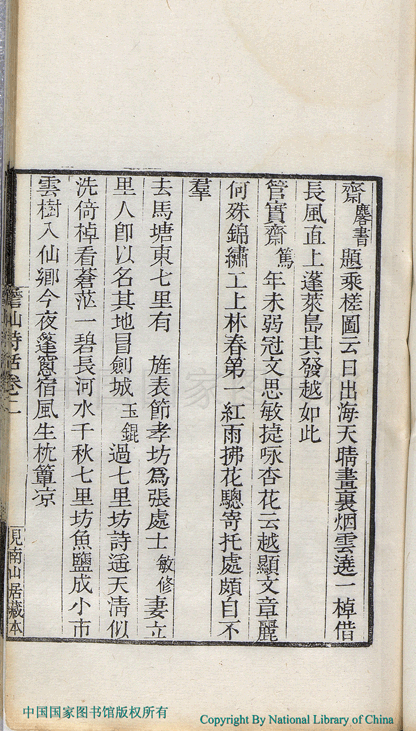 齋麐書題乘槎圖云日出海天晴畫裏烟雲遶一棹借
長風直上蓬萊島其發越如此
管實齋篤年未弱冠文思敏捷咏杏花云越顯文章麗
何殊錦繡工上林春第一紅雨拂花驄寄托處頗自不
羣
去馬塘東七里有 旌表節孝坊為張處士敏修妻立
里人卽以名其地冒劍城玉錕過七里坊詩遥天淸似
洗倚棹看蒼茫一碧長河水千秋七里坊魚鹽成小市
雲樹入仙鄉今夜蓬窻宿風生枕簟凉
詩話卷二
見南山居藏本
中国国家图书馆版权所有
Copyright By National Library of China